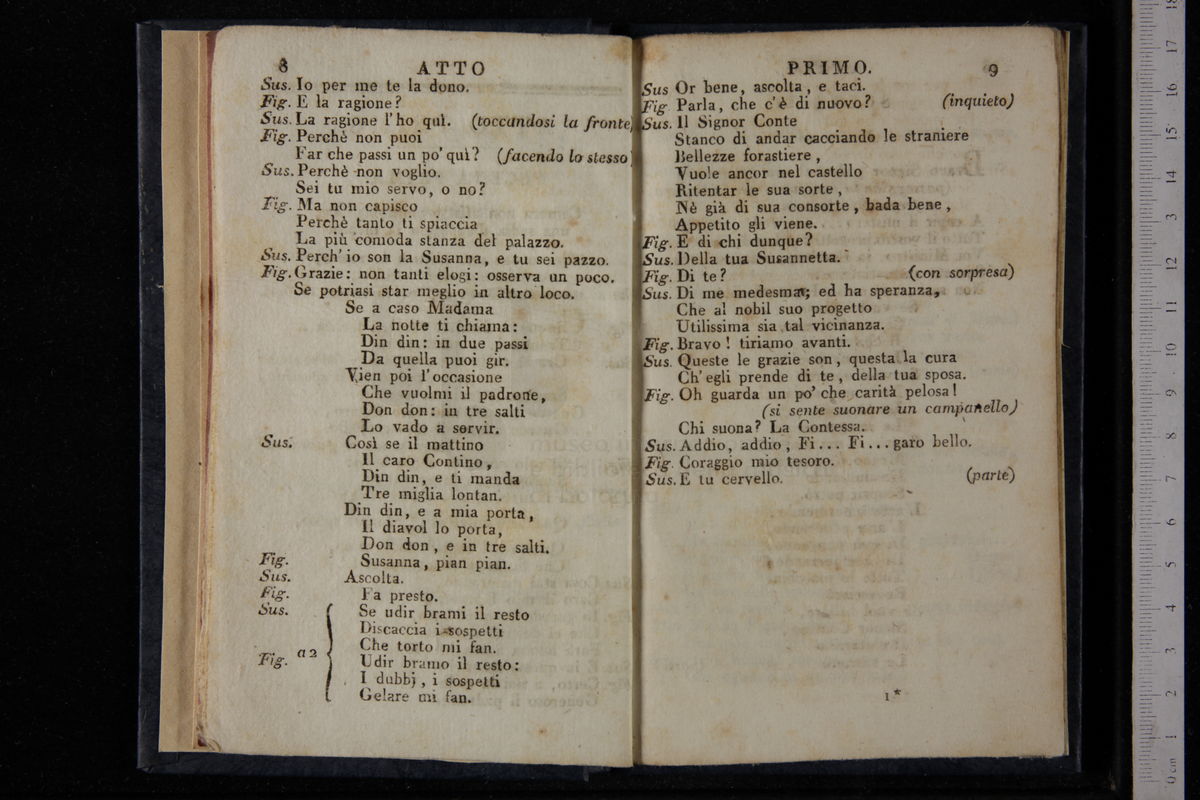 8 ATTO
Sus. Io per me te la dono.
Fig. E la ragione?
Sus. La ragione l'ho quì. (toccandosi la fronte)
Fig. Perchè non puoi
Far che passi un po' quì? (facendo lo stesso)
Sus. Perchè non voglio.
Sei tu mio servo, o no?
Fig. Ma non capisco
Perchè tanto ti spiaccia
La più comoda stanza del palazzo.
Sus. Perch' io son la Susanna, e tu sei pazzo.
Fig. Grazie: non tanti elogi: osserva un poco.
Se potriasi star meglio in altro loco.
Se a caso Madama
La notte ti chiama:
Din din: in due passi
Da quella puoi gir.
Vien poi l'occasione
Che vuolmi il padrone,
Don don: in tre salti
Lo vado a servir.
Sus. Così se il mattino
Il caro Contino,
Din din, e ti manda
Tre miglia lontan.
Din din, e a mia porta,
Il diavol lo porta,
Don don, e in tre salti.
Fig. Susanna, pian pian.
Sus. Ascolta.
Fig. Fa presto.
Sus. Se udir brami il resto
Discaccia i sospetti
Che torto mi fan.
a 2
Fig. Udir bramo il resto:
I dubbj, i sospetti
Gelare mi fan.
PRIMO. 9
Sus Or bene, ascolta, e taci.
Fig Parla, che c'è di nuovo? (inquieto)
Sus. Il Signor Conte
Stanco di andar cacciando le straniere
Bellezze forastiere,
Vuole ancor nel castello
Ritentar le sua sorte,
Nè già di sua consorte, bada bene,
Appetito gli viene.
Fig. E di chi dunque?
Sus. Della tua Susannetta.
Fig. Di te? (con sorpresa)
Sus. Di me medesma; ed ha speranza,
Che al nobil suo progetto
Utilissima sia tal vicinanza.
Fig. Bravo! tiriamo avanti.
Sus. Queste le grazie son, questa la cura
Ch' egli prende di te, della tua sposa.
Fig. Oh guarda un po' che carità pelosa!
(si sente suonare un campanello)
Chi suona? La Contessa.
Sus. Addio, addio, Fi... Fi...garo bello.
Fig. Coraggio mio tesoro.
Sus. E tu cervello. (parte)
1*
0 cm 1 2 3 4 5 6 7 8 9 10 11 12 13 14 15 16 17 18